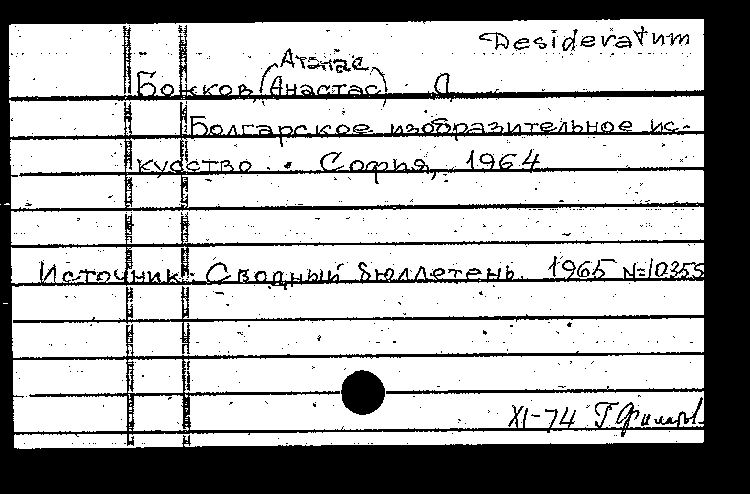 Desideratum
Атанас
Божков (Анастас) Д
Болгарское изобразительное ис-
кусство. София, 1964
Источник: Сводный бюллетень. 1965 №10355
XI-74 Г.